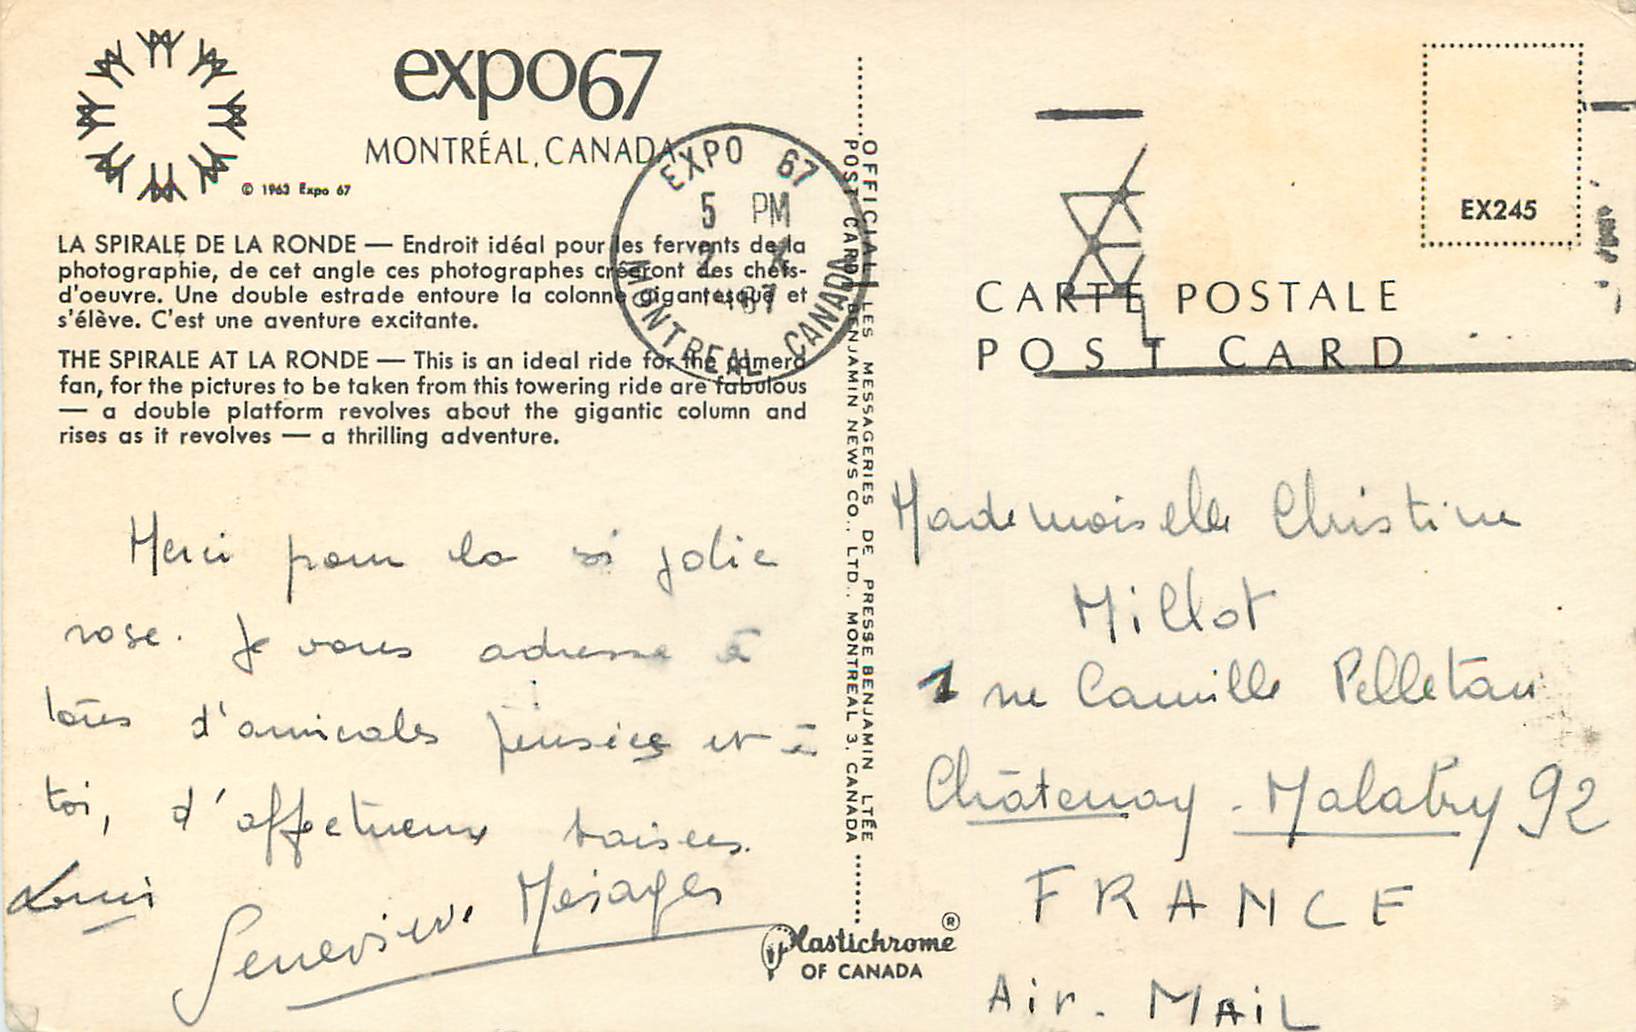 expo67
MONTRÉAL, CANADA
© 1963 Expo 67
LA SPIRALE DE LA RONDE — Endroit idéal pour les fervents de la
photographie, de cet angle ces photographes créeront des chefs-
d'oeuvre. Une double estrade entoure la colonne gigantesque et
s'élève. C'est une aventure excitante.
THE SPIRALE AT LA RONDE — This is an ideal ride for the camera
fan, for the pictures to be taken from this towering ride are fabulous
— a double platform revolves about the gigantic column and
rises as it revolves — a thrilling adventure.
EXPO 67
5 PM
2 X
1967
MONTREAL CANADA
Merci pour la si jolie
rose. Je vous adresse à
tous d'amicales pensées et à
toi, d'affectueux baisers.
Louis
Geneviève Mesages
OFFICIAL LES MESSAGERIES DE PRESSE BENJAMIN LTÉE
POST CARD BENJAMIN NEWS CO., LTD., MONTREAL 3, CANADA
Plastichrome ®
OF CANADA
EX245
CARTE POSTALE
POST CARD
Mademoiselle Christine
Millot
1 rue Camille Pelletan
Châtenay - Malabry 92
FRANCE
Air. MAiL